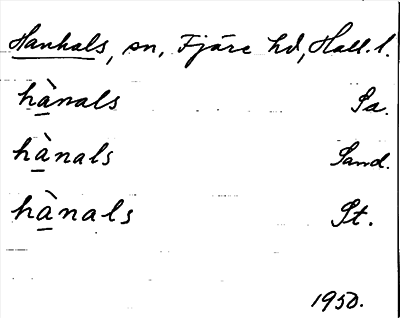 Hanhals, sn, Fjäre hd, Hall. l.
hànals Sa.
hànals Sand.
hànals St.
1950.